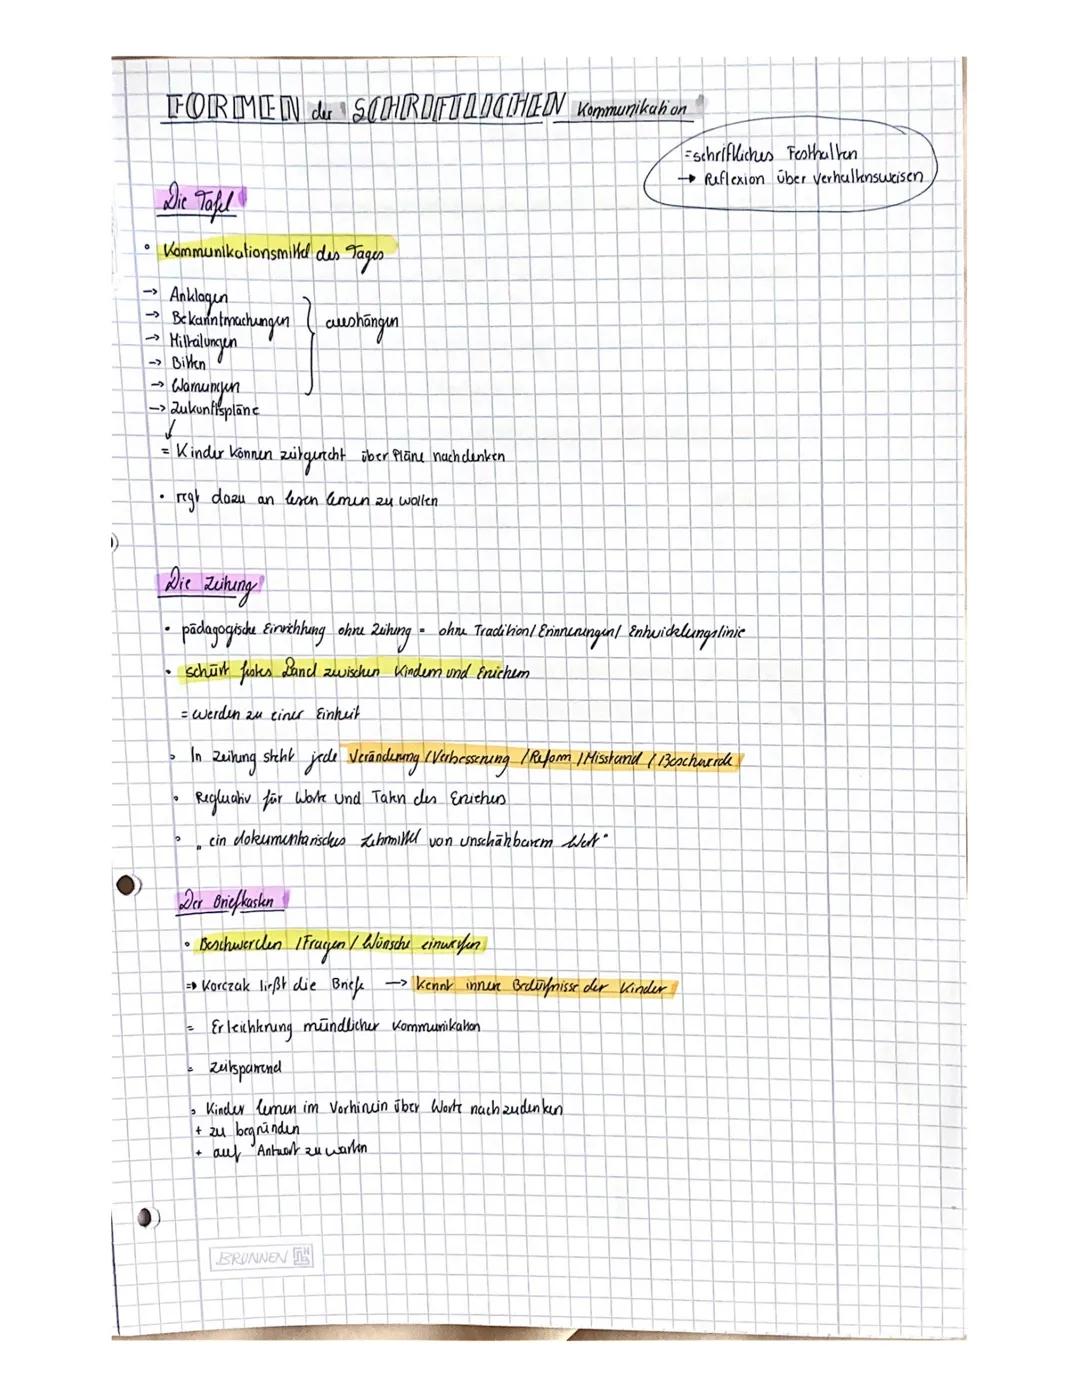 FORMEN der SCHRIFTLICHEN Kommunikation
=schriftliches Festhalten
→ Reflexion über Verhaltensweisen
Die Tafel
• Kommunikationsmittel des Tages
→ Anklagen
→ Bekanntmachungen } aushängen
→ Mitteilungen
→ Bitten
→ Warnungen
→ Zukunftspläne
= Kinder können zeitgerecht über Pläne nachdenken
• regt dazu an lesen lernen zu wollen
Die Zeitung
• pädagogische Einrichtung ohne Zeitung = ohne Tradition/ Erinnerungen/ Entwicklungslinie
• schürt festes Band zwischen Kindern und Erziehern
= werden zu einer Einheit
• In Zeitung steht jede Veränderung /Verbesserung /Reform /Misstand /Beschwerde
• Regluativ für Worte und Taten des Erziehers
• „ein dokumentarisches Lehrmittel von unschätzbarem Wert"
Der Briefkasten
• Beschwerden /Fragen / Wünsche einwerfen
=> Korczak ließt die Briefe → kennt innere Bedürfnisse der Kinder
= Erleichterung mündlicher Kommunikation
= zeitsparend
• Kinder lernen im Vorhinein über Worte nachzudenken
+ zu begründen
+ auf Antwort zu warten
BRUNNEN